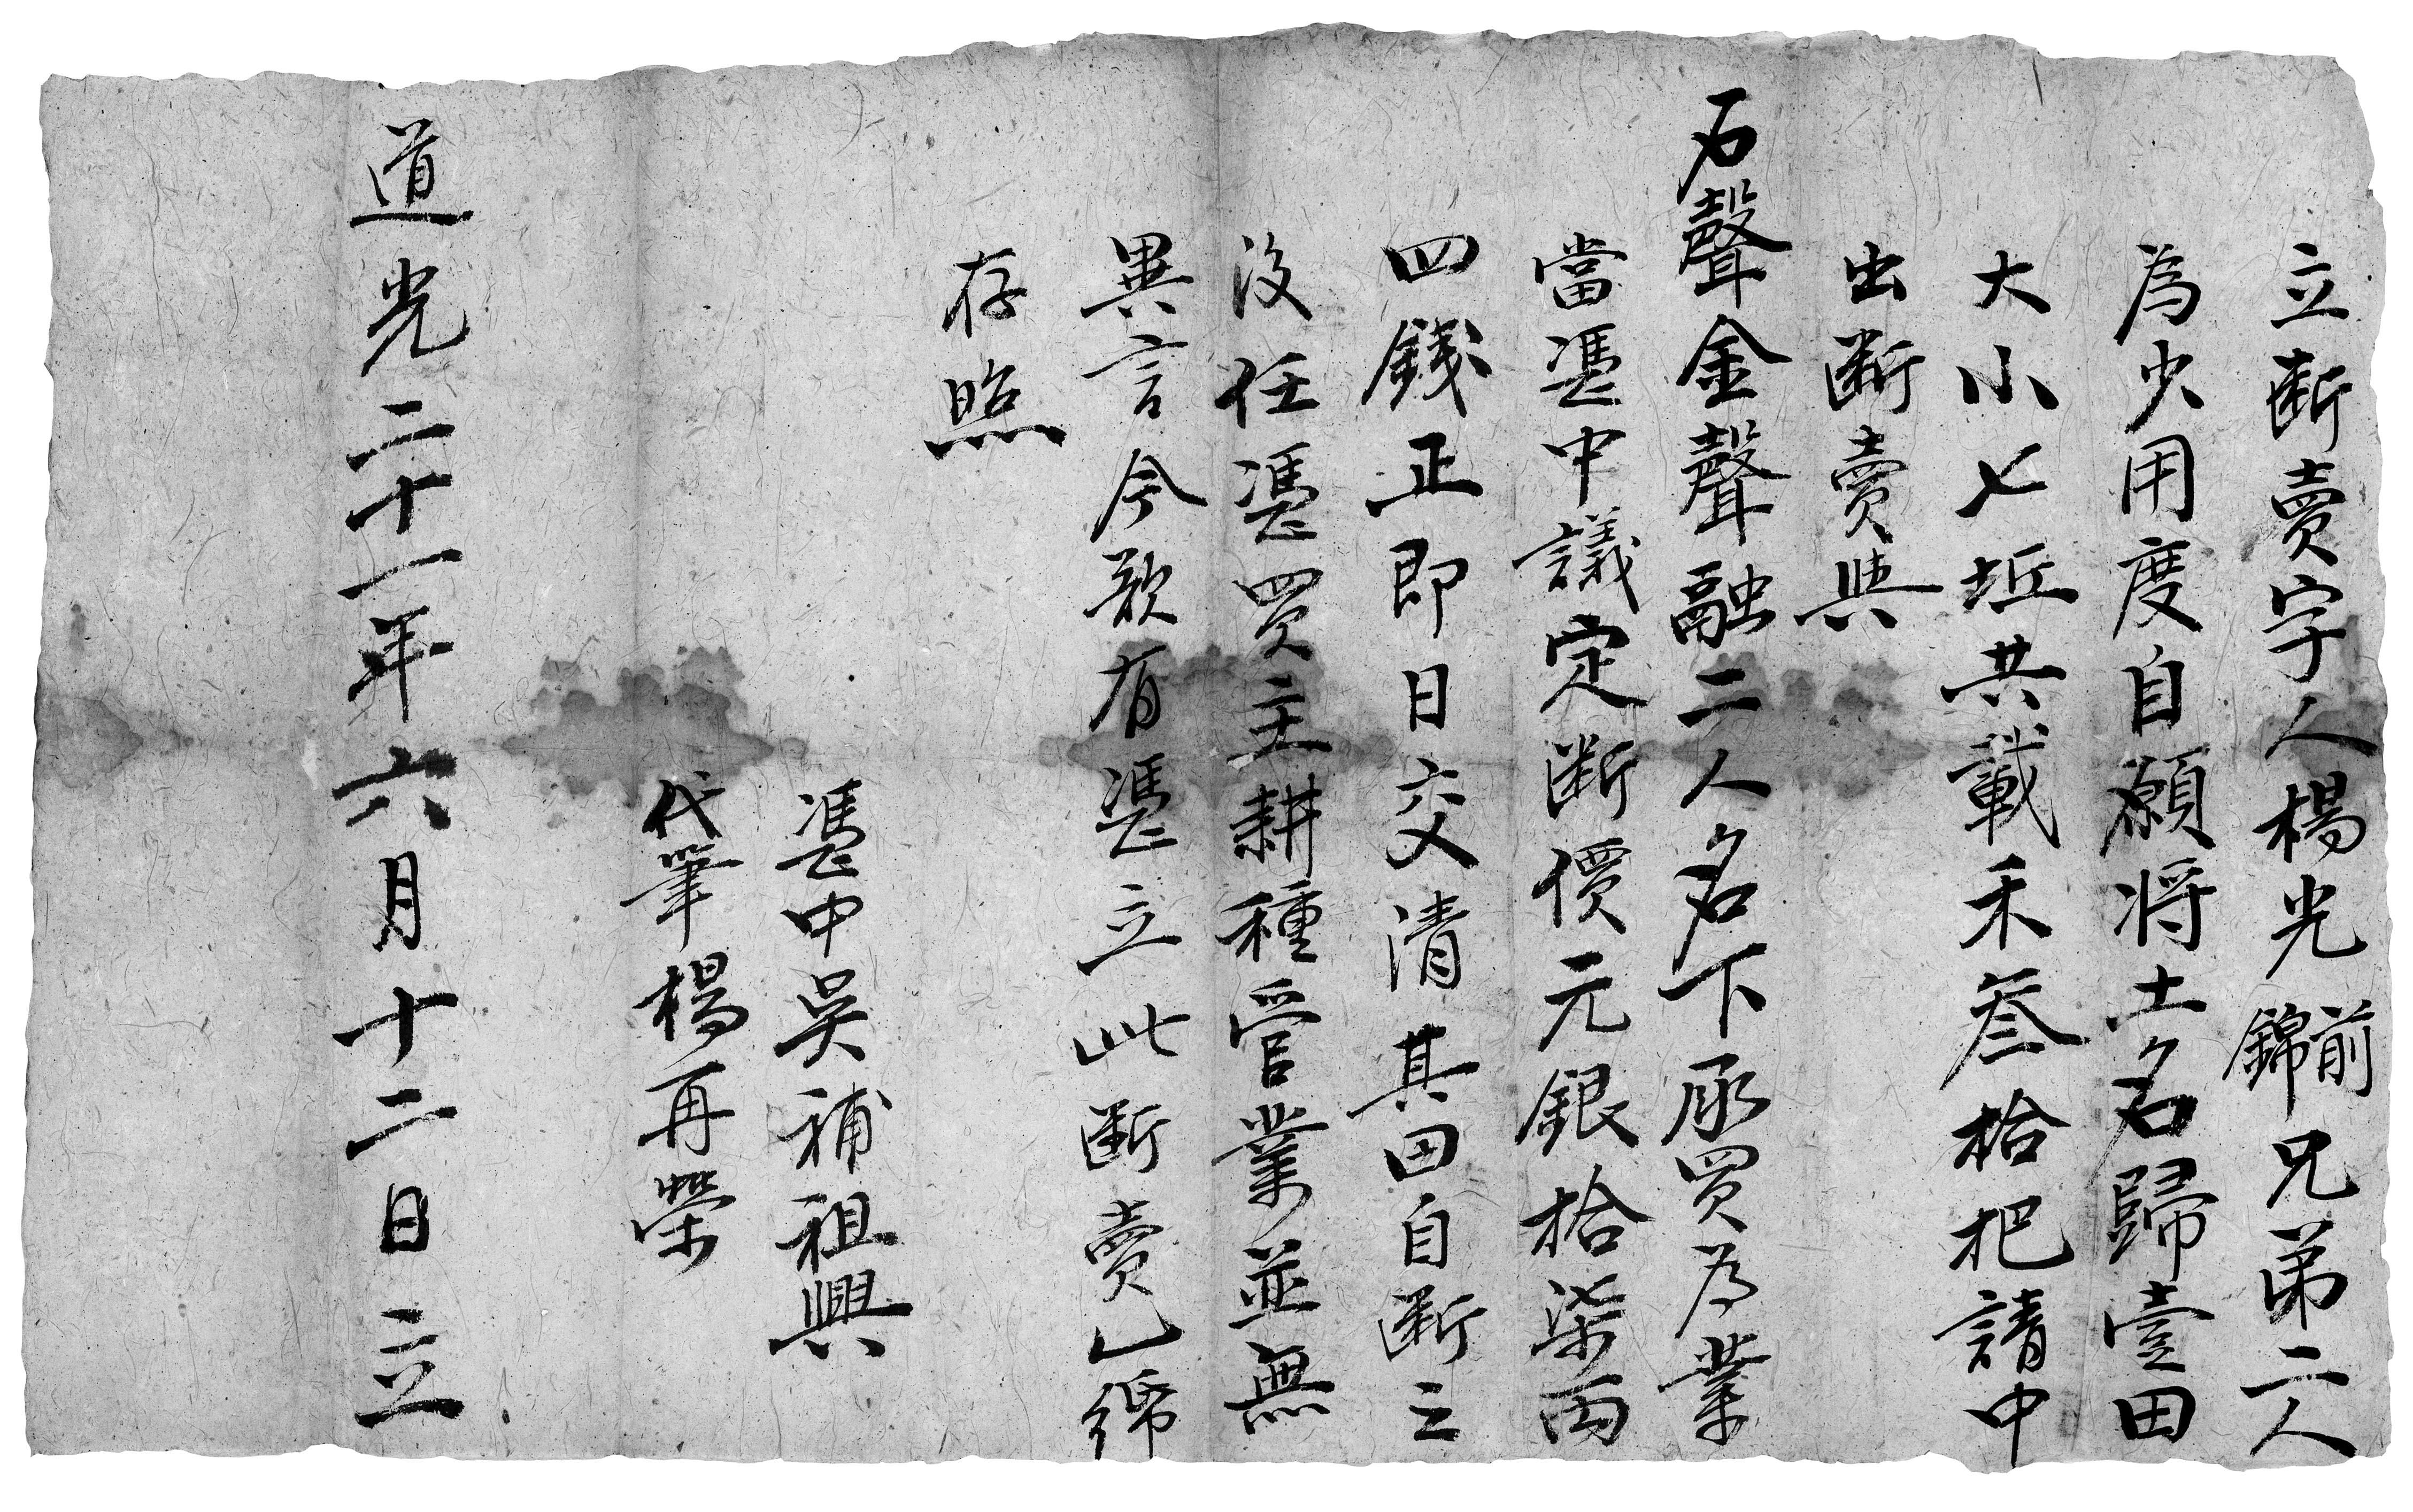 立断賣字人楊光前錦兄弟二人
為少用度自願将土名歸壹田
大小七坵共載禾叁拾把請中
出断賣與
石聲金聲融二人名下承買為業
當憑中議定断價元銀拾柒両
四錢正即日交清其田自断之
後任憑買主耕種管業並無
異言今欲有憑立此断賣乙紙
存照
憑中吳補祖興
代筆楊再榮
道光二十一年六月十二日立